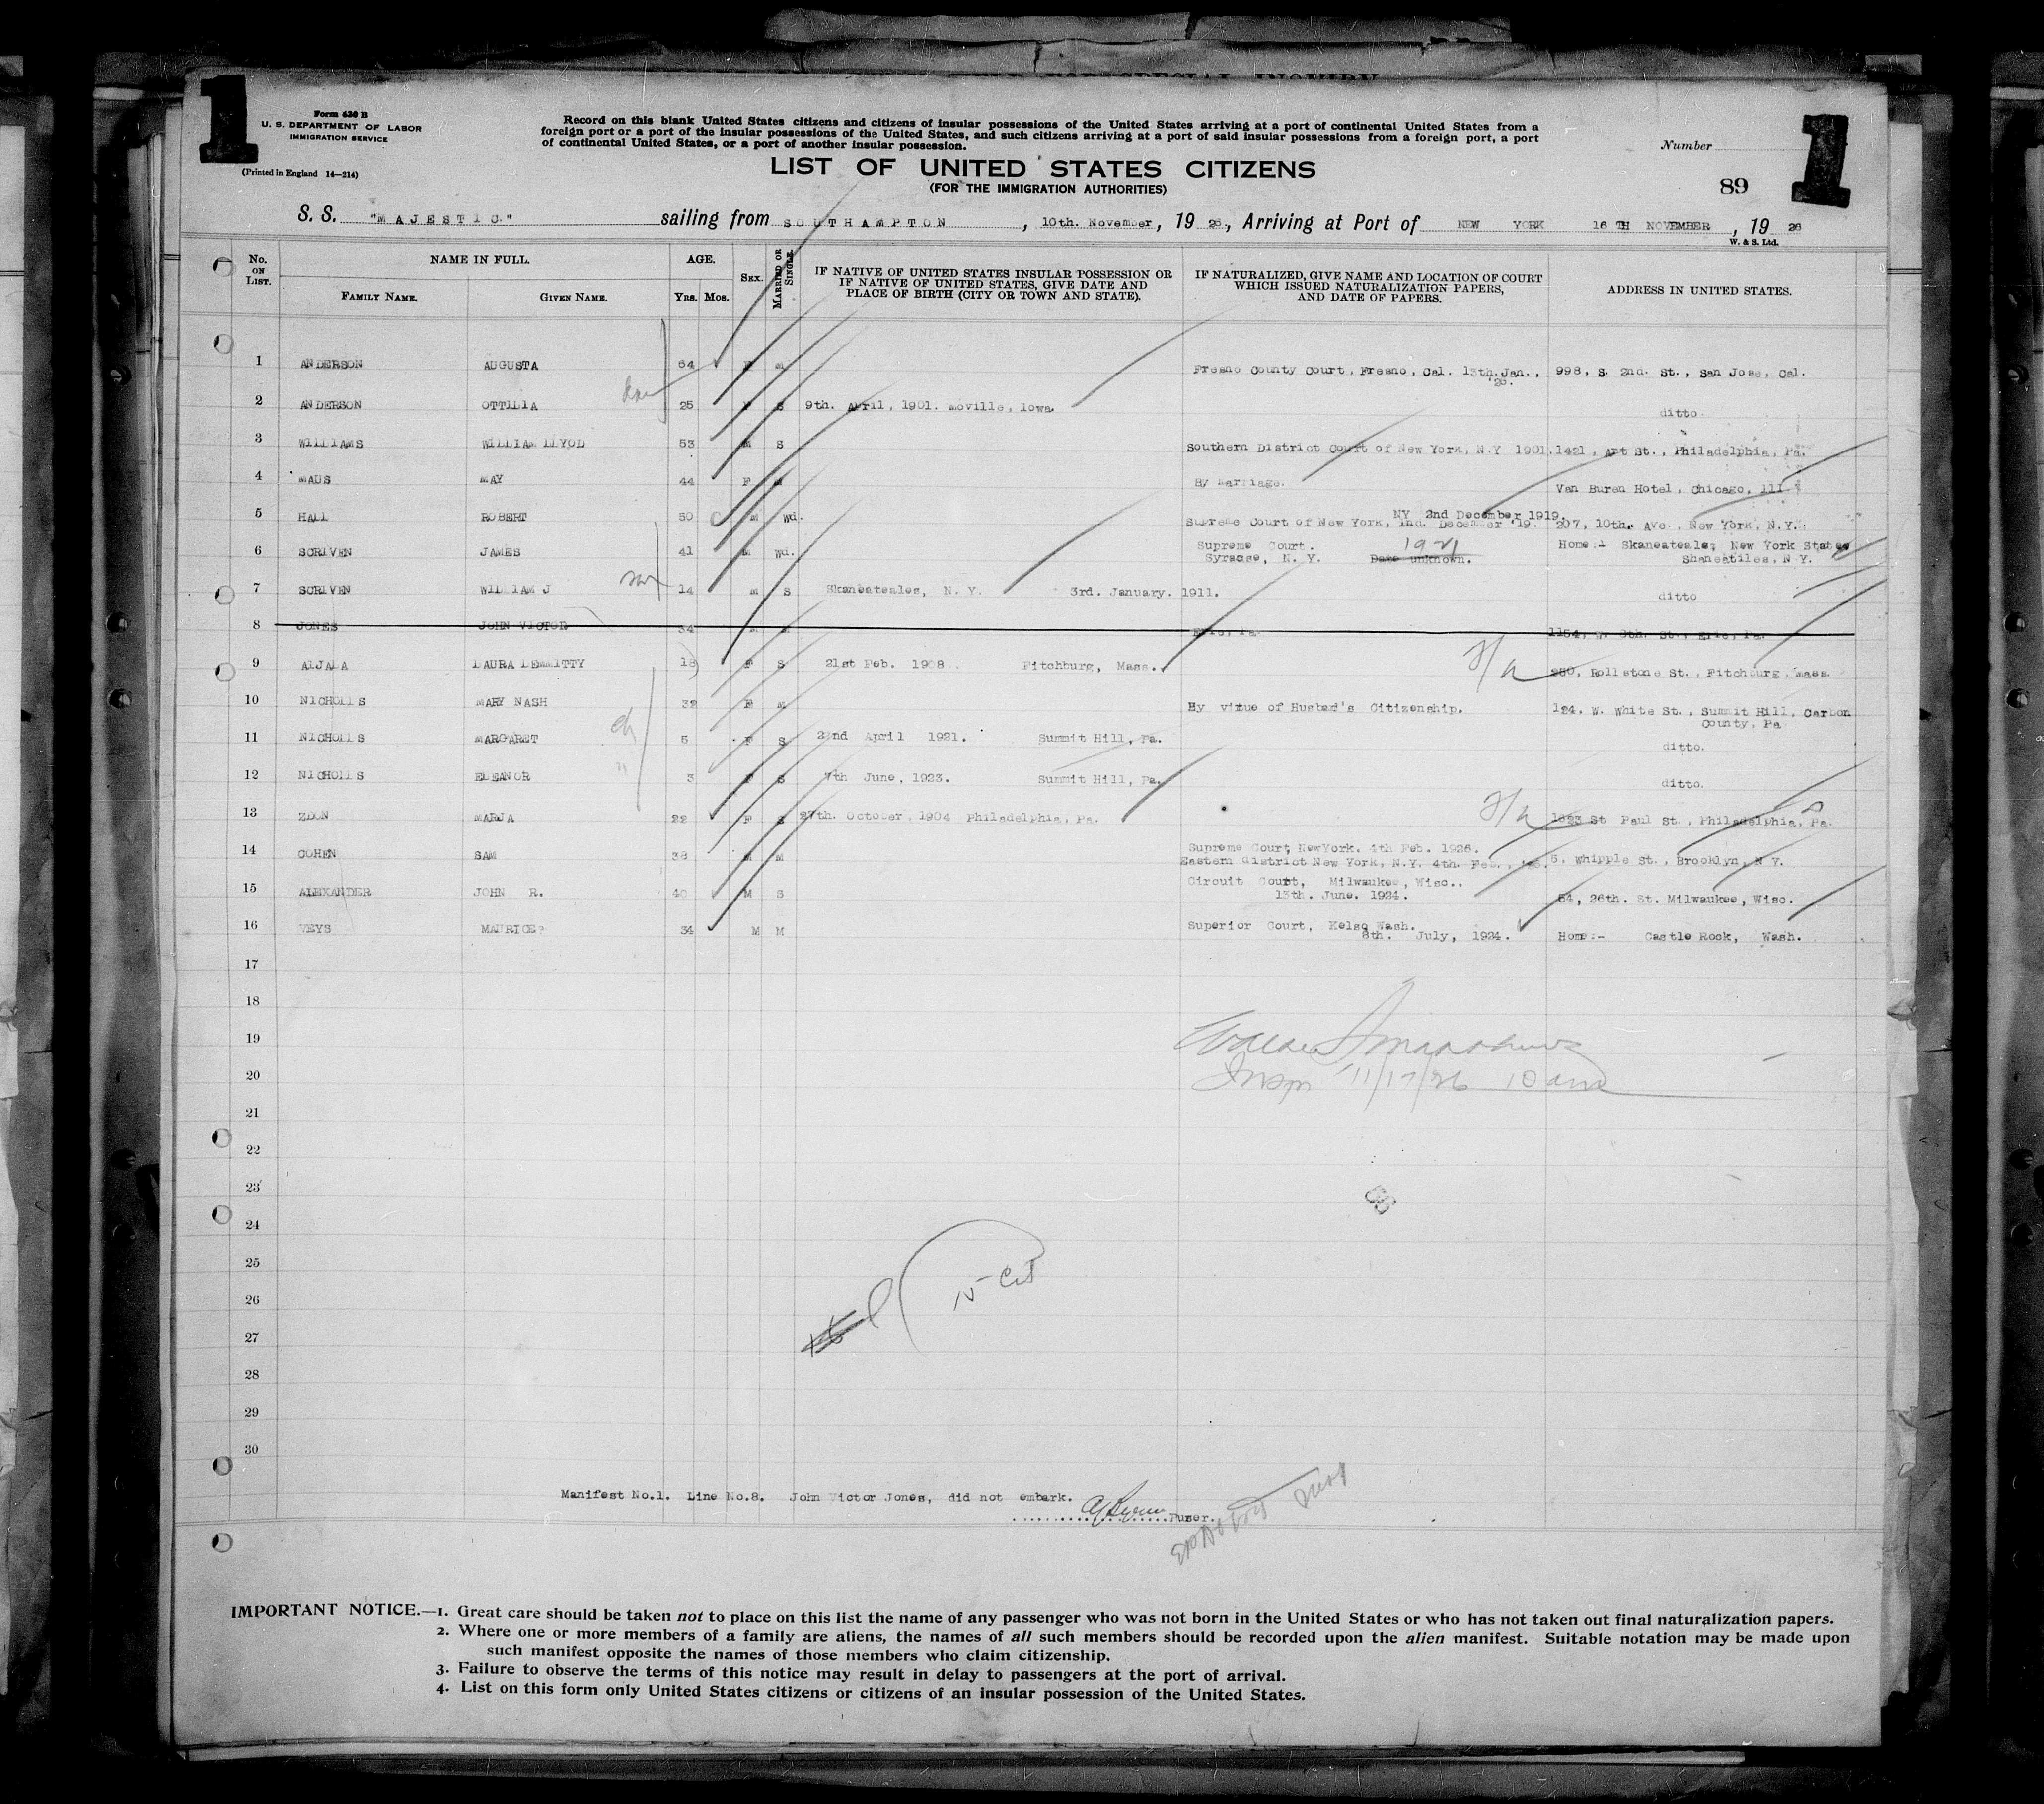 1
1
Form 630 B
U. S. DEPARTMENT OF LABOR
IMMIGRATION SERVICE
(Printed in England 14—214)
Record on this blank United States citizens and citizens of insular possessions of the United States arriving at a port of continental United States from a
foreign port or a port of the insular possessions of the United States, and such citizens arriving at a port of said insular possessions from a foreign port, a port
of continental United States, or a port of another insular possession.
Number
LIST OF UNITED STATES CITIZENS
(FOR THE IMMIGRATION AUTHORITIES)
89
S. S. "MAJESTIC" sailing from SOUTHAMPTON, 10th. November, 19 26, Arriving at Port of NEW YORK 16 TH NOVEMBER, 19 26
W. & S. Ltd.
No. ON LIST. NAME IN FULL. FAMILY NAME. GIVEN NAME. AGE. YRS. MOS. SEX. MARRIED OR SINGLE. IF NATIVE OF UNITED STATES INSULAR POSSESSION OR IF NATIVE OF UNITED STATES, GIVE DATE AND PLACE OF BIRTH (CITY OR TOWN AND STATE). IF NATURALIZED, GIVE NAME AND LOCATION OF COURT WHICH ISSUED NATURALIZATION PAPERS, AND DATE OF PAPERS. ADDRESS IN UNITED STATES.
1 ANDERSON AUGUSTA 64 F M Fresno County Court, Fresno, Cal. 13th.Jan., 998, S. 2nd. St., San Jose, Cal.
2 ANDERSON OTTILIA 25 F S 9th. April, 1901. Moville, Iowa. ditto
3 WILLIAMS WILLIAM LLYOD 53 M S Southern District Court of New York, N.Y 1901. 1421, Art St., Philadelphia, Pa.
4 MAUS MAY 44 F M By Marriage. Van Buren Hotel, Chicago, Ill
NY 2nd December 1919.
5 HALL ROBERT 50 M Wd. Supreme Court of New York, Ind. December '19. 207, 10th. Ave., New York, N.Y.
6 SCRIVEN JAMES 41 M Wd. Supreme Court. 1921 Home:- Skaneateales New York State
Syracse, N. Y. Date unknown. Shaneatiles, N.Y.
7 SCRIVEN WILLIAM J 14 M S Skaneateales, N. Y. 3rd. January. 1911. ditto
8 JONES JOHN VICTOR 34 M M Erie, Pa. 1154, W. 9th. St., Erie, Pa.
9 AIJALA LAURA LEMMITTY 18 F S 21st Feb. 1908. Fitchburg, Mass. 250, Rollstone St., Fitchburg, Mass.
10 NICHOLLS MARY NASH 32 F M By virtue of Husbad's Citizenship. 124. W. White St., Summit Hill, Carbon
County, Pa
11 NICHOLLS MARGARET 5 F S 22nd April 1921. Summit Hill, Pa. ditto.
12 NICHOLLS ELEANOR 3 F S 7th June, 1923. Summit Hill, Pa. ditto.
13 ZDON MARJA 22 F S 27th. October, 1904 Philadelphia, Pa. St Paul St., Philadelphia, Pa.
14 COHEN SAM 38 M M Supreme Court NewYork. 4th Feb. 1926.
Eastern district New York, N.Y. 4th. Feb., 6, Whipple St., Brooklyn, N Y.
15 ALEXANDER JOHN R. 40 M S Circuit Court, Milwaukee, Wisc..
13th. June. 1924. 54, 26th. St. Milwaukee, Wisc.
16 VEYS MAURICE 34 M M Superior Court, Kelso Wash.
8th. July, 1924. Home:- Castle Rock, Wash.
17
18
19
20
Inspr 11/17/26 10 am
21
22
23
24
25
15 Cit
26
27
28
29
30
Manifest No.1. Line No.8. John Victor Jones, did not embark.
Purser.
IMPORTANT NOTICE.—1. Great care should be taken not to place on this list the name of any passenger who was not born in the United States or who has not taken out final naturalization papers.
2. Where one or more members of a family are aliens, the names of all such members should be recorded upon the alien manifest. Suitable notation may be made upon
such manifest opposite the names of those members who claim citizenship.
3. Failure to observe the terms of this notice may result in delay to passengers at the port of arrival.
4. List on this form only United States citizens or citizens of an insular possession of the United States.